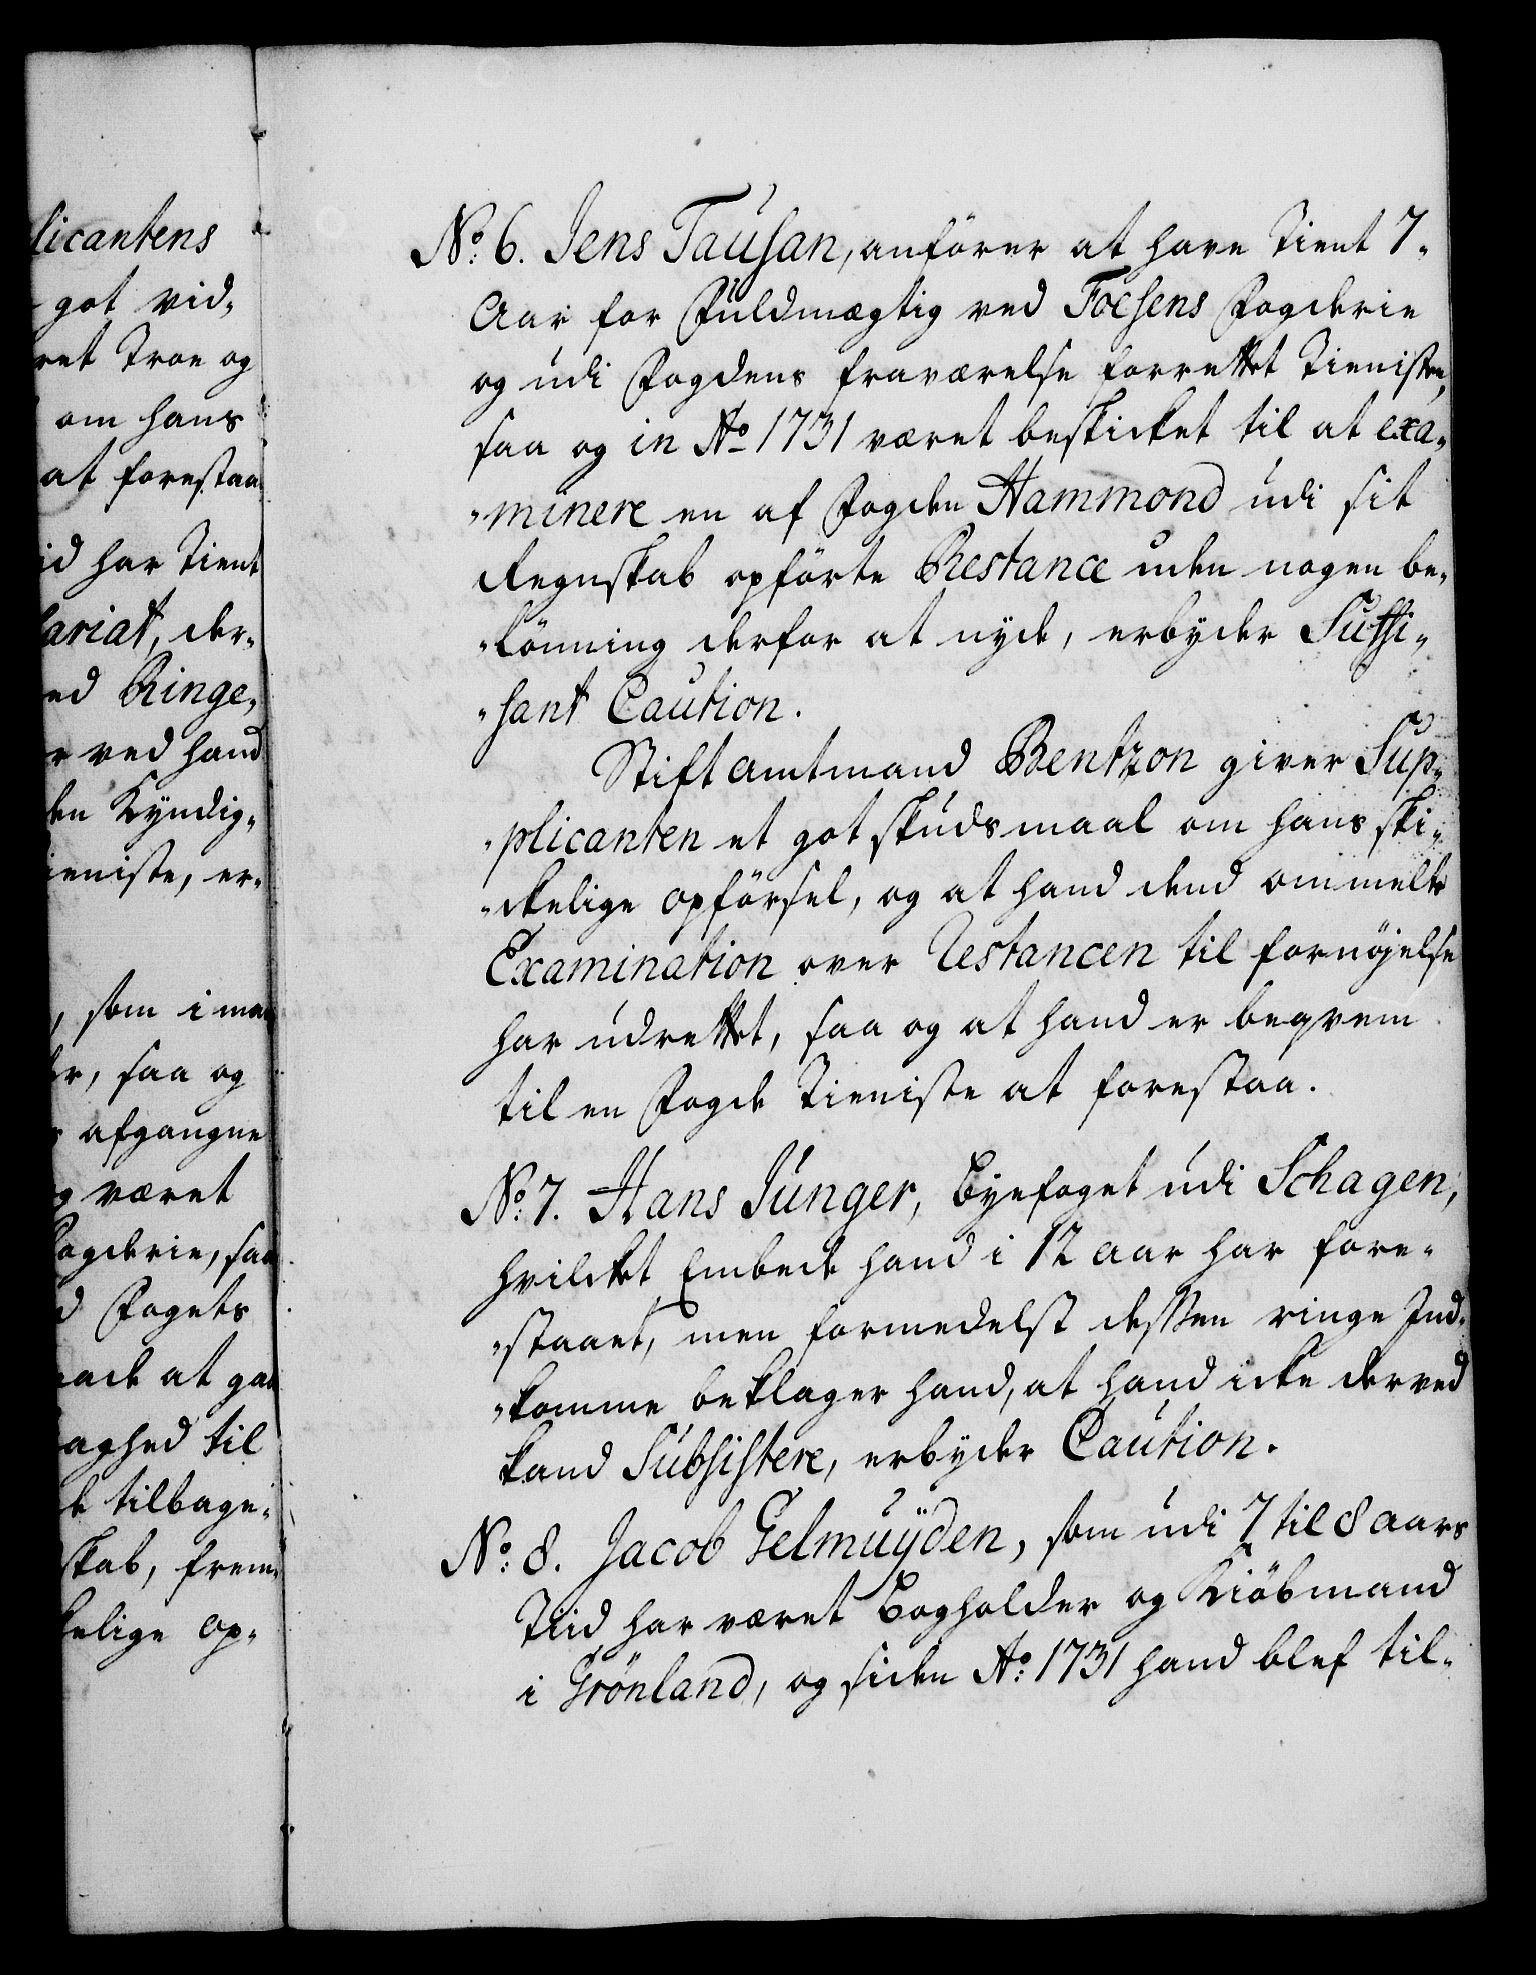 licantens
got vid-
ret Troe og
om hans
at forestaa
id har tient
ariat, der-
ed Ringe-
r ved hand
den Kyndig-
ieniste, er-
, som i man
er, saa og
s afgangne
og været
Fogderie, saa
d Fogets
ade at gaa
aghed til
de tilbage-
skab, frem-
kelige op-
No: 6. Jens Tausan, anfører at have tient 7-
Aar for Fuldmægtig ved Foesens Fogderie
og udi Fogdens fraværelse forrettet Tienisten,
saa og in Ao 1731 været beskicket til at exa-
-minere en af Fogden Hammond udi sit
Regnskab opførte Restance uden nogen be-
-lønning derfor at nyde, erbyder Suffi-
-sant Caution.
Stiftamtmand Bentzon giver Sup-
-plicanten et got skudsmaal om hans ski-
-ckelige opførsel, og at hand dend ommelte
Examination over Restancen til fornøjelse
har udrettet, saa og at hand er beqvem
til en Fogde Tieniste at forestaa.
No: 7. Hans Junger, Byefoget udi Schagen,
hvilcket Embede hand i 12 aar har fore-
-staaet, men formedelst dessen ringe Ind-
-komme beklager hand, at hand icke derved
kand Subsistere, erbyder Caution.
No: 8. Jacob Gelmuÿden, som udi 7 til 8 aars
Tiid har været Bogholder og Kiøbmand
i Grönland, og siden Ao: 1731 hand blef til-